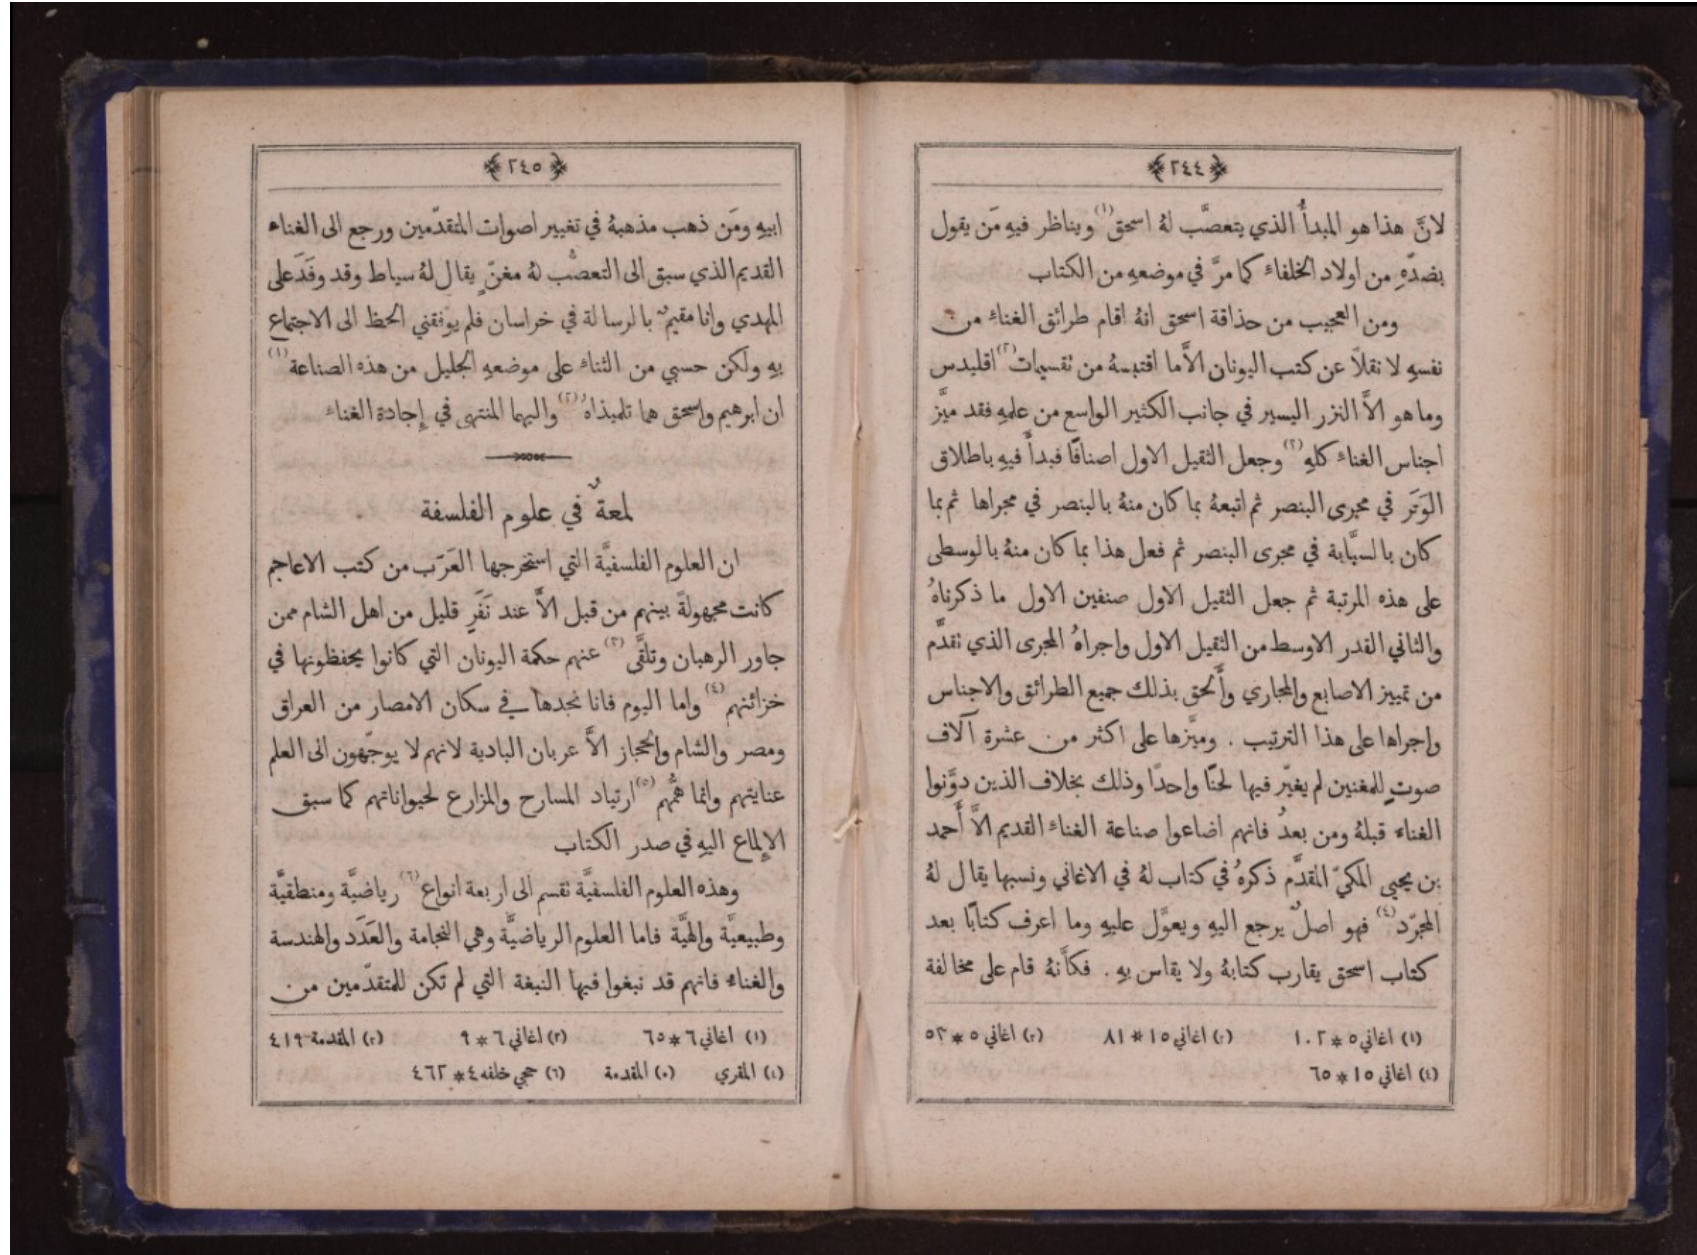 ﴿٢٤٤﴾
لانَّ هذا هو المبدأُ الذي يتعصَّب لهُ اسحق(١) ويناظر فيهِ مَن يقول
بضدّهِ من اولاد الخلفاء كما مرَّ في موضعهِ من الكتاب
ومن العجيب من حذاقة اسحق انهُ اقام طرائق الغناء من
نفسهِ لا نقلاً عن كتب اليونان الاَّ ما اقتبسهُ من تقسيمات(٢) اقليدس
وما هو الاَّ النزر اليسير في جانب الكثير الواسع من علمهِ فقد ميَّز
اجناس الغناء كلهِ(٣) وجعل الثقيل الاول اصنافًا فبدأَ فيهِ باطلاق
الوَتَر في مجرى البنصر ثم اتبعهُ بما كان منهُ بالبنصر في مجراها ثم بما
كان بالسبَّابة في مجرى البنصر ثم فعل هذا بما كان منهُ بالوسطى
على هذه المرتبة ثم جعل الثقيل الاول صنفين الاول ما ذكرناهُ
والثاني القدر الاوسط من الثقيل الاول واجراهُ المجرى الذي تقدَّم
من تمييز الاصابع والمجاري وأَلحق بذلك جميع الطرائق والاجناس
واجراها على هذا الترتيب . وميَّزها على اكثر من عشرة آلاف
صوتٍ للمغنين لم يغيّر فيها لحنًا واحدًا وذلك بخلاف الذين دوَّنوا
الغناء قبلهُ ومن بعدُ فانهم اضاعوا صناعة الغناء القديم الاَّ أَحمد
بن يحيى المكيّ المقدَّم ذكرهُ في كتاب لهُ في الاغاني ونسبها يقال لهُ
المجرّد(٤) فهو اصلٌ يرجع اليهِ ويعوَّل عليهِ وما اعرف كتابًا بعد
كتاب اسحق يقارب كتابهُ ولا يقاس بهِ . فكأَنهُ قام على مخالفة
(١) اغاني ٥ * ١٠٢ (٢) اغاني ١٥ * ٨١ (٣) اغاني ٥ * ٥٣
(٤) اغاني ١٥ * ٦٥
﴿٢٤٥﴾
ابيهِ ومَن ذهب مذهبهُ في تغيير اصوات المتقدّمين ورجع الى الغناء
القديم الذي سبق الى التعصُّب لهُ مغنّ يقال لهُ سياط وقد وفَدَ على
المهدي وانا مقيمٌ بالرسالة في خراسان فلم يوفقني الحظ الى الاجتماع
بهِ ولكن حسبي من الثناء على موضعهِ الجليل من هذه الصناعة(١)
ان ابرهيم واسحق هما تلميذاهُ(٢) واليهما المنتهى في إِجادة الغناء
لمعةٌ في علوم الفلسفة
ان العلوم الفلسفيَّة التي استخرجها العَرَب من كتب الاعاجم
كانت مجهولةً بينهم من قبل الاَّ عند نَفَرٍ قليل من اهل الشام ممن
جاور الرهبان وتلقَّى(٣) عنهم حكمة اليونان التي كانوا يحفظونها في
خزائنهم(٤) واما اليوم فانا نجدها في سكان الامصار من العراق
ومصر والشام والحجاز الاَّ عربان البادية لانهم لا يوجّهون الى العلم
عنايتهم وانما همُّهم(٥) ارتياد المسارح والمزارع لحيواناتهم كما سبق
الإِلماع اليهِ في صدر الكتاب
وهذه العلوم الفلسفيَّة تقسم الى اربعة انواع(٦) رياضيَّة ومنطقيَّة
وطبيعيَّة والهيَّة فاما العلوم الرياضيَّة وهي النجامة والعَدَد والهندسة
والغناء فانهم قد نبغوا فيها النبغة التي لم تكن للمتقدّمين من
(١) اغاني ٦ * ٦٥ (٢) اغاني ٦ * ٩ (٣) المقدمة ٤١٩
(٤) المقري (٥) المقدمة (٦) حجي خلفه ٤ * ٤٦٢